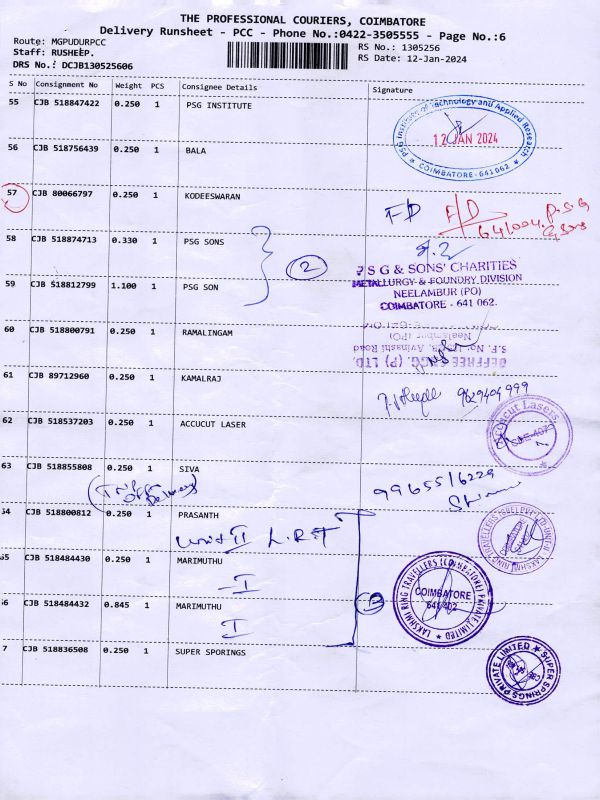 THE PROFESSIONAL COURIERS, COIMBATORE
Delivery Runsheet - PCC - Phone No.:0422-3505555 - Page No.:6
Route: MGPUDURPCC
RS No.: 1305256
Staff: RUSHEEP.
RS Date: 12-Jan-2024
DRS No.: DCJB130525606
S No Consignment No Weight PCS Consignee Details Signature
55 CJB 518847422 0.250 1 PSG INSTITUTE
PSG Institute of Technology and Applied Research
12 JAN 2024
★ COIMBATORE-641 062 ★
56 CJB 518756439 0.250 1 BALA
57 CJB 80066797 0.250 1 KODEESWARAN
FD F/D
641004. P.S.G
& Sons
58 CJB 518874713 0.330 1 PSG SONS
2
P S G & SONS' CHARITIES
METALLURGY & FOUNDRY DIVISION
NEELAMBUR (PO)
COIMBATORE - 641 062.
59 CJB 518812799 1.100 1 PSG SON
60 CJB 518800791 0.250 1 RAMALINGAM
Neelambur (PO)
Avinashi Road
61 CJB 89712960 0.250 1 KAMALRAJ
9629404999
62 CJB 518537203 0.250 1 ACCUCUT LASER
Lasers
63 CJB 518855808 0.250 1 SIVA
9965516229
54 CJB 518800812 0.250 1 PRASANTH
Unit II L.R.T
55 CJB 518484430 0.250 1 MARIMUTHU
I
LAKSHMI RING TRAVELLERS (COIMBATORE) PRIVATE LIMITED ★
COIMBATORE
641 402
56 CJB 518484432 0.845 1 MARIMUTHU
I
7 CJB 518836508 0.250 1 SUPER SPORINGS
★ SUPER SPRINGS PRIVATE LIMITED